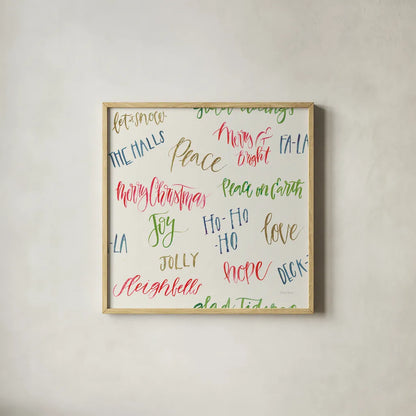 glad tidings
let it snow
Merry &
bright
FA-LA
THE HALLS
Peace
Merry Christmas
Peace on Earth
Joy
HO-HO
-HO
love
-LA
JOLLY
hope
DECK
Sleighbells
glad tidings